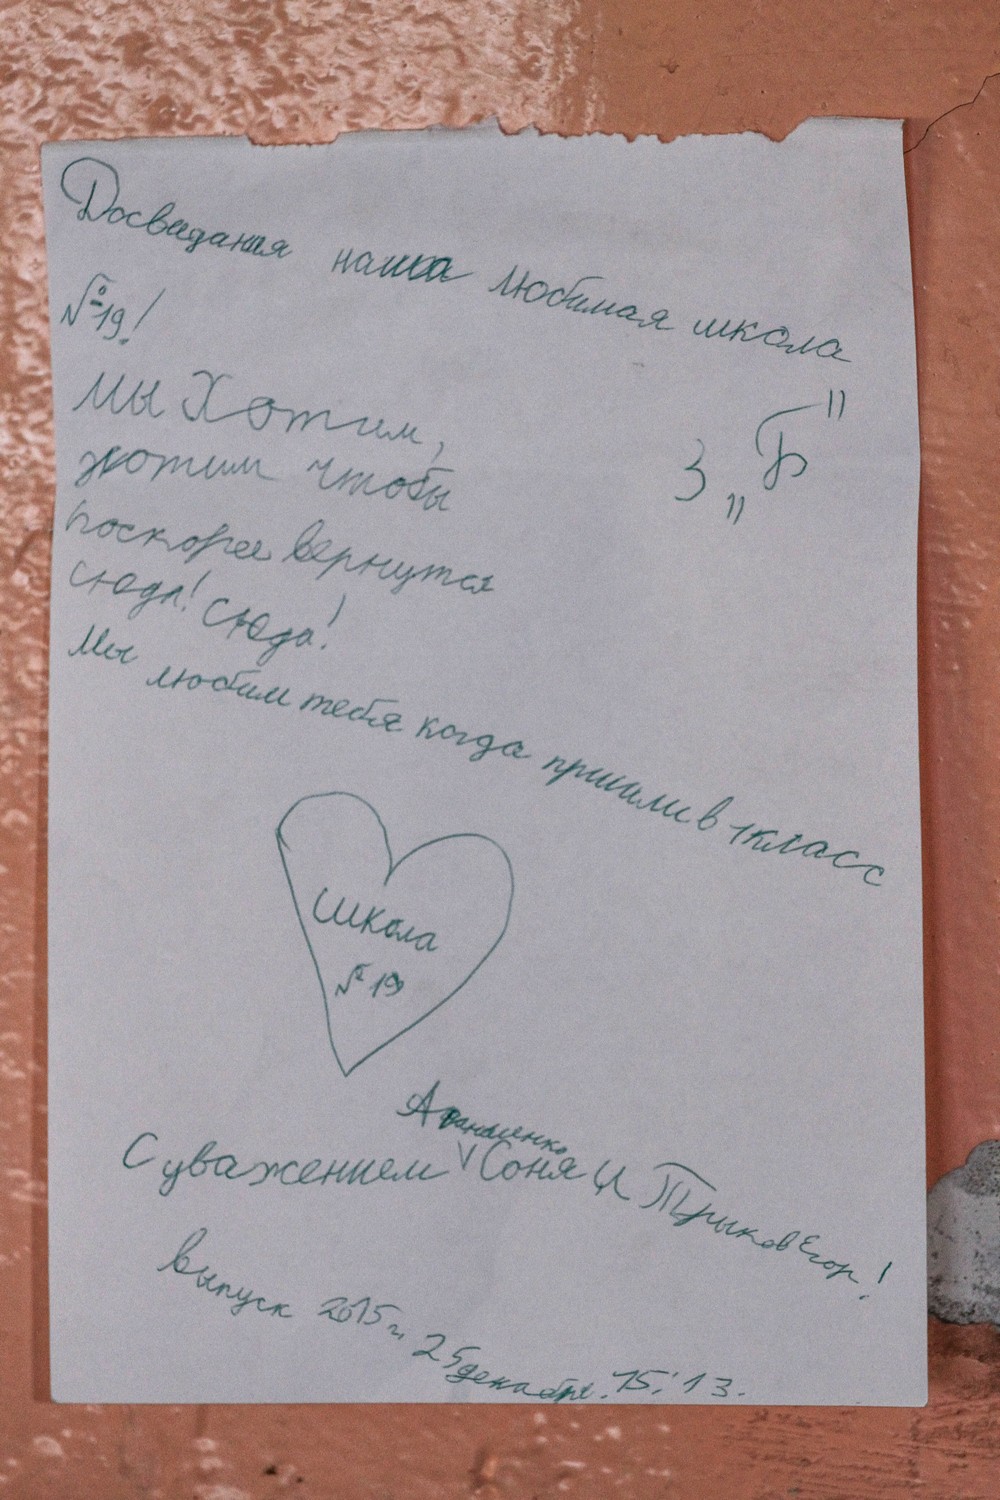 Досведания наша любимая школа
№19!
3 „Б"
Мы Хотим,
хотим чтобы
поскорее вернутся
сюда! сюда!
Мы любим тебя когда пришли в 1класс
Школа
№19
С уважением Соня и Трыков Егор!
выпуск 2015г. 25декабря. 15:13.